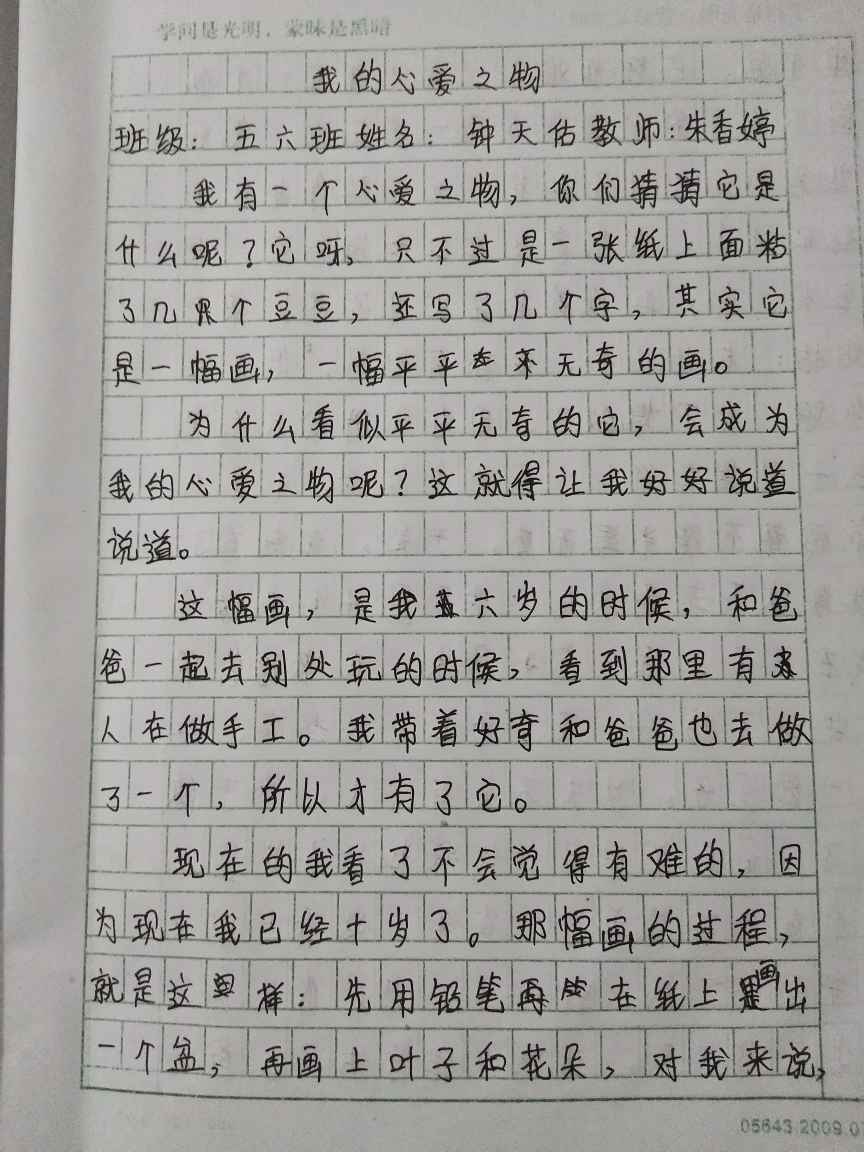 学问是光明，蒙昧是黑暗
我的心爱之物
班级：五六班姓名：钟天佑教师：朱香婷
我有一个心爱之物，你们猜猜它是
什么呢？它呀，只不过是一张纸上面粘
了几个豆豆，还写了几个字，其实它
是一幅画，一幅平平无奇的画。
为什么看似平平无奇的它，会成为
我的心爱之物呢？这就得让我好好说道
说道。
这幅画，是我六岁的时候，和爸
爸一起去别处玩的时候，看到那里有
人在做手工。我带着好奇和爸爸也去做
了一个，所以才有了它。
现在的我看了不会觉得有难的，因
为现在我已经十岁了。那幅画的过程，
就是这样：先用铅笔再在纸上画出
一个盆，再画上叶子和花朵，对我来说，
05643.2009.0